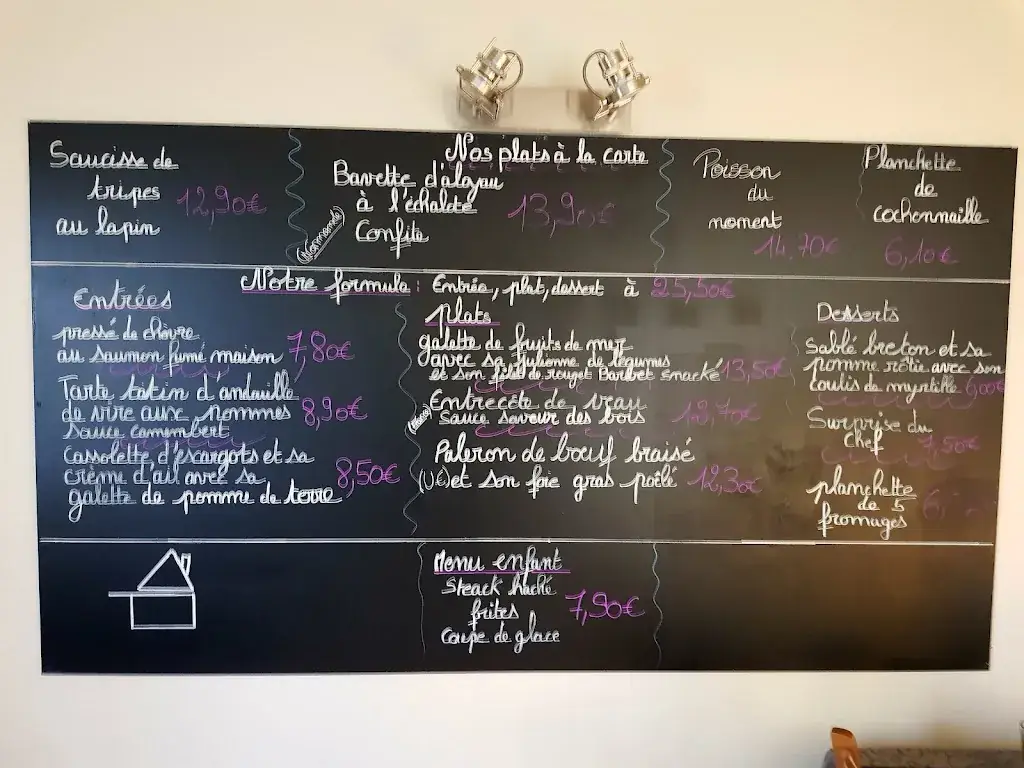 Nos plats à la carte
Saucisse de
tripes
au lapin
12,90€
Bavette d'aloyau
à l'échalote
Confite
(Normande)
13,90€
Poisson
du
moment
14,70€
Planchette
de
cochonnaille
6,10€
Notre formule : Entrée, plat, dessert à 25,50€
Entrées
pressé de chèvre
au saumon fumé maison 7,80€
Tarte tatin d'andouille
de vire aux pommes 8,90€
sauce camembert
Cassolette d'escargots et sa
crème d'ail avec sa 8,50€
galette de pomme de terre
plats
galette de fruits de mer
avec sa julienne de légumes
et son filet de rouget Barbet snacké 13,50€
Entrecôte de veau
Sauce saveur des bois
Paleron de boeuf braisé
(UE) et son foie gras poêlé 12,30€
Desserts
Sablé breton et sa
pomme rôtie avec son
coulis de myrtille 6,00€
Surprise du
chef 7,50€
planchette
de 5
fromages
Menu enfant
Steack haché
frites 7,90€
Coupe de glace